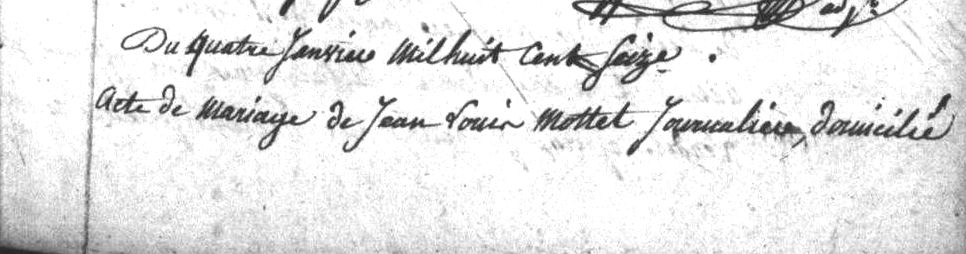 adj.t
Du quatre Janvier Mil huit Cent Seize.
Acte de Mariage de Jean Louis Mottet Journalier, domicilié